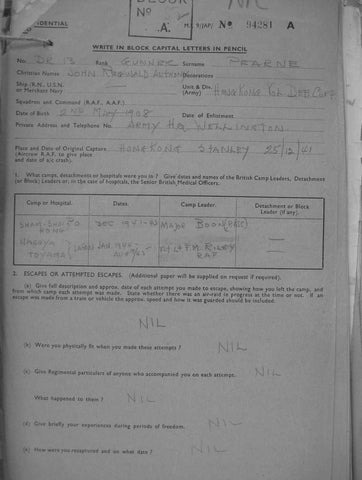 NIL
IDENTIAL
BLOCK
Nº
.A.
M.I. 9/JAP/ Nº 94281 A
WRITE IN BLOCK CAPITAL LETTERS IN PENCIL
No. DR 13 Rank GUNNER Surname FEARNE
Christian Names JOHN REGINALD Decorations
Ship (R.N., U.S.N. or Merchant Navy)
Unit & Div. (Army) HONG KONG Vol DEF Corps
Squadron and Command (R.A.F., A.A.F.)
Date of Birth 2ND MAY 1908 Date of Enlistment
Private Address and Telephone No. ARMY HQ WELLINGTON.
Place and Date of Original Capture HONGKONG STANLEY 25/12/41
(Aircrew R.A.F. to give place
and date of a/c crash).
1. What camps, detachments or hospitals were you in ? Give dates and names of the British Camp Leaders, Detachment
(or Block) Leaders or, in the case of hospitals, the Senior British Medical Officers.
Camp or Hospital. Dates. Camp Leader. Detachment or Block
Leader (if any).
SHAM-SHUI-PO DEC 1941- MAJOR BOON
KONG
NAGOYA JAPAN JAN RILEY
TOYAMA RAF
2. ESCAPES OR ATTEMPTED ESCAPES. (Additional paper will be supplied on request if required).
(a) Give full description and approx. date of each attempt you made to escape, showing how you left the camp, and
from which camp each attempt was made. State whether there was an air-raid in progress at the time or not. If an
escape was made from a train or vehicle the approx. speed and how it was guarded should be included.
NIL
(b) Were you physically fit when you made these attempts ? NIL
(c) Give Regimental particulars of anyone who accompanied you on each attempt. NIL
What happened to them ? NIL
(d) Give briefly your experiences during periods of freedom. NIL
(e) How were you recaptured and on what date ? NIL